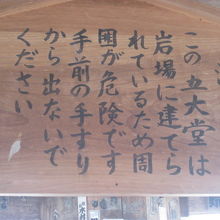 この五大堂は
岩場に建てら
れているため周
囲が危険です
手前の手すり
から出ないで
ください